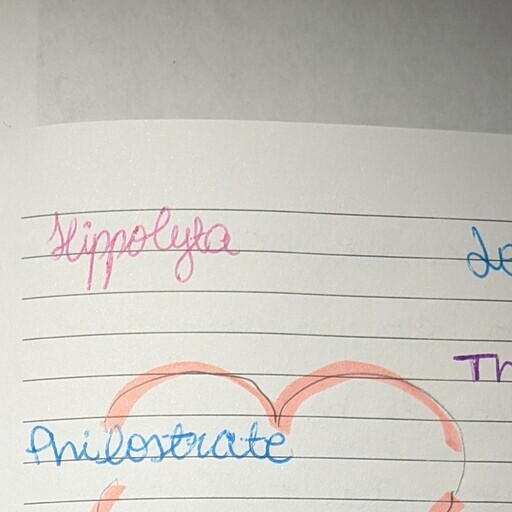 Hippolyta
Philostrate